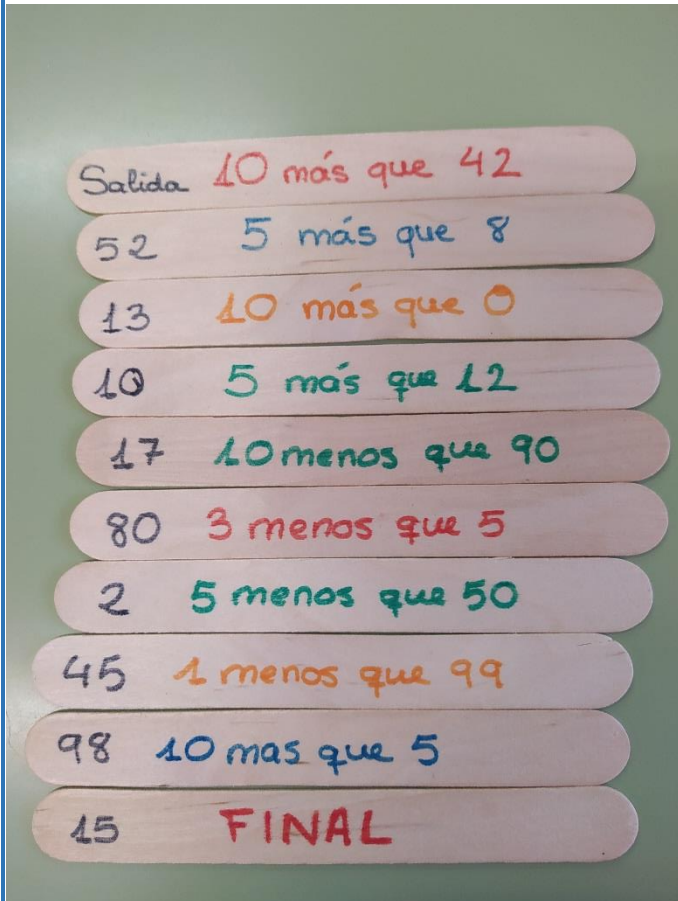 Salida 10 más que 42
52 5 más que 8
13 10 más que 0
10 5 más que 12
17 10 menos que 90
80 3 menos que 5
2 5 menos que 50
45 1 menos que 99
98 10 mas que 5
15 FINAL